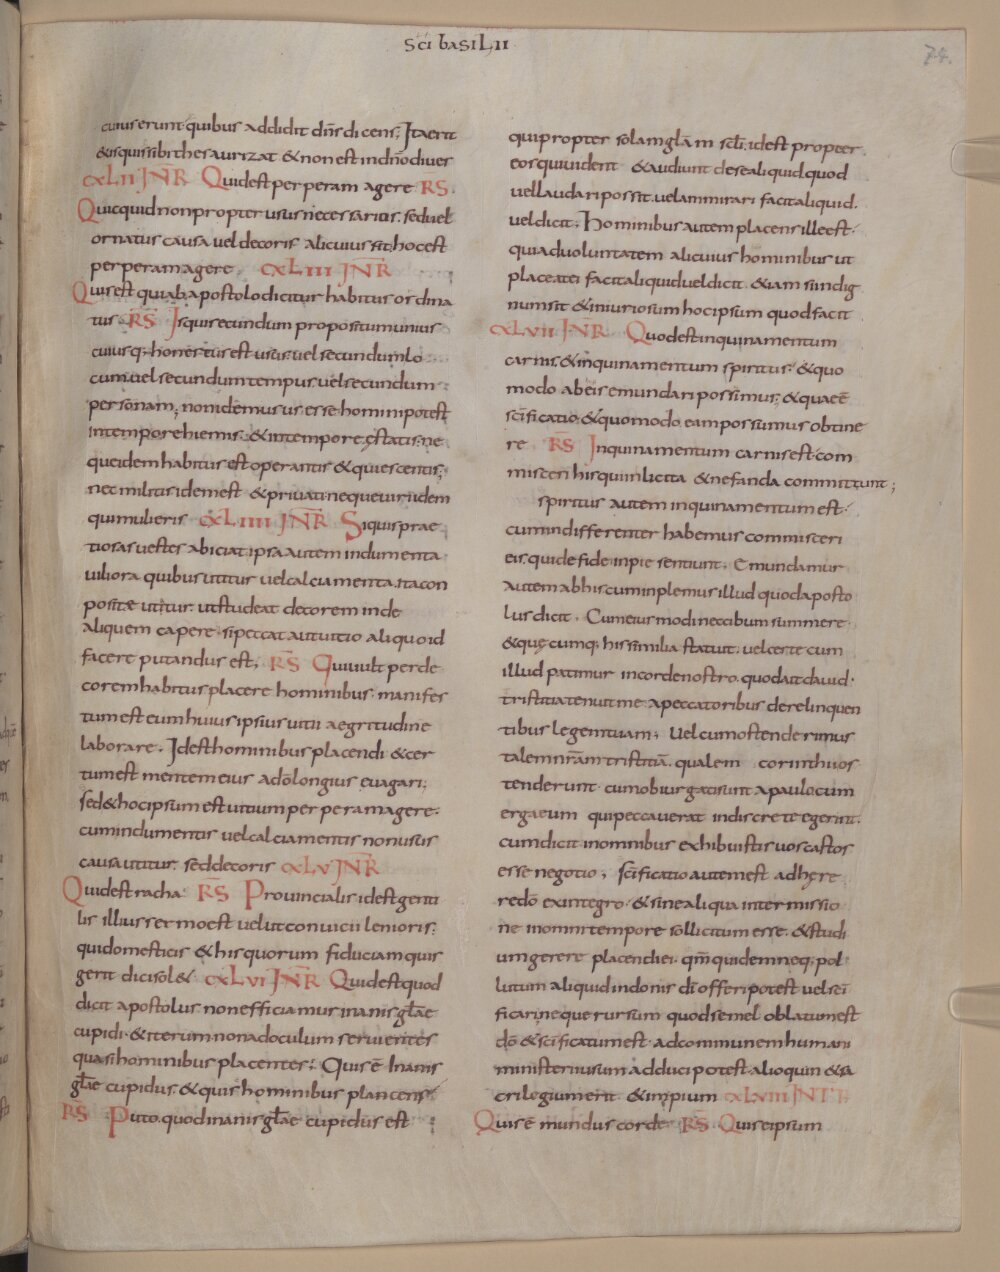 sci basiLii
74.
cuius erunt quibus addidit dns dicens; Ita erit
& is qui sibi thesaurizat & non est in dno diues
cxLii INR Quid est perperam agere RS
Quicquid non propter usus necessarios. sed uel
ornatus causa uel decoris alicuius fit; hoc est
perperam agere, cxLiii INR
Quis est qui ab apostolo dicitur habitus ordina
tus RS Is qui secundum propositum unius
cuiusq; honestus est usus; uel secundum lo
cum uel secundum tempus uel secundum
personam; non idem usus esse homini potest
in tempore hiemis; & in tempore ęstatis; ne
que idem habitus est operantis & quiescentis;
nec militis idem est & priuati neque uiri idem
qui mulieris cxLiiii INR Si quis prae
tiosas uestes abiciat ipsa autem indumenta
uiliora quibus utitur uel calciamenta. ita con
posite utitur. ut studeat decorem inde
aliquem capere. si peccat aut uitio aliquo id
facere putandus est; RS Qui uult per de
corem habitus placere hominibus. manifes
tum est eum huius ipsius uitii aegritudine
laborare. Id est hominibus placendi. & cer
tum est mentem eius a do longius euagari;
sed & hoc ipsum est uitium perperam agere.
cum indumentis uel calciamentis non usus
causa utitur. sed decoris cxLv INR
Quid est racha RS Prouincialis id est genti
lis illius sermo est uelut conuicii lenioris;
qui domesticis & his quorum fiduciam quis
gerit dici sol& cxLvi INR Quid est quod
dicit apostolus non efficiamur inanis glae
cupidi. & iterum non ad oculum seruientes
quasi hominibus placentes; Quis ē Inanis
glae cupidus. & quis hominibus plancens
RS Puto. quod inanis glae cupidus est
qui propter solam glam scli. id est propter
eos qui uident & audiunt de se aliquid quod
uel laudari possit. uel ammirari facit aliquid.
uel dicit. Hominibus autem placens ille est.
qui ad uoluntatem alicuius hominibus ut
placeat ei facit aliquid uel dicit. etiam si indig
num sit & iniuriosum hoc ipsum quod facit
cxLvii INR Quod est inquinamentum
carnis. & inquinamentum spiritus. & quo
modo ab eis emundari possimus; & quae ē
scificatio. & quomodo eam possumus obtine
re RS Inquinamentum carnis est com
misceri his qui inlicita & nefanda committunt;
spiritus autem inquinamentum est.
cum indifferenter habemus commisceri
eis. qui de fide inpie sentiunt. Emundamur
autem ab his cum inplemus illud quod aposto
lus dicit. Cum eiusmodi nec cibum summere.
& quę cumq; his similia statuit. uel certe cum
illud patimur in corde nostro. quod ait dauid.
tristitia tenuit me a peccatoribus derelinquen
tibus legem tuam; Uel cum ostenderimus
talem nram tristitiā. qualem corinthios
tenderunt. cum obiurgati sunt a paulo cum
erga eum qui peccauerat indiscrete egerint.
cum dicit in omnibus exhibuistis uos castos
esse negotio; scificatio autem est adhęre
re do ex integro. & sine aliqua intermissio
ne in omni tempore sollicitum esse. & studi
um gerere placendi ei. qm quidem neq; pol
lutum aliquid in donis di offeri potest uel sci
ficari neque rursum quod semel oblatum est
do & scificatum est. ad communem humani
ministerii usum adduci potest. alioquin & sa
crilegium erit & inpium cxLviii INTR
Quis ē mundus corde RS Qui se ipsum